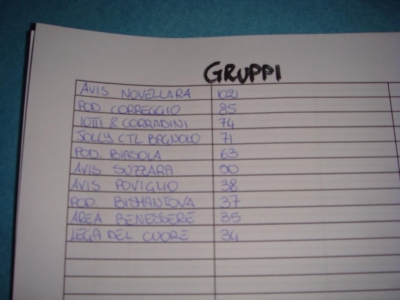 GRUPPI
AVIS NOVELLARA
POD. CORREGGIO 85
IOTTI & CORRADINI 74
JOLLY CTL BAGNOLO 71
POD. BIASOLA 63
AVIS SUZZARA
AVIS POVIGLIO 38
POD. BISMANTOVA 37
AREA BENESSERE 35
LEGA DEL CUORE 34